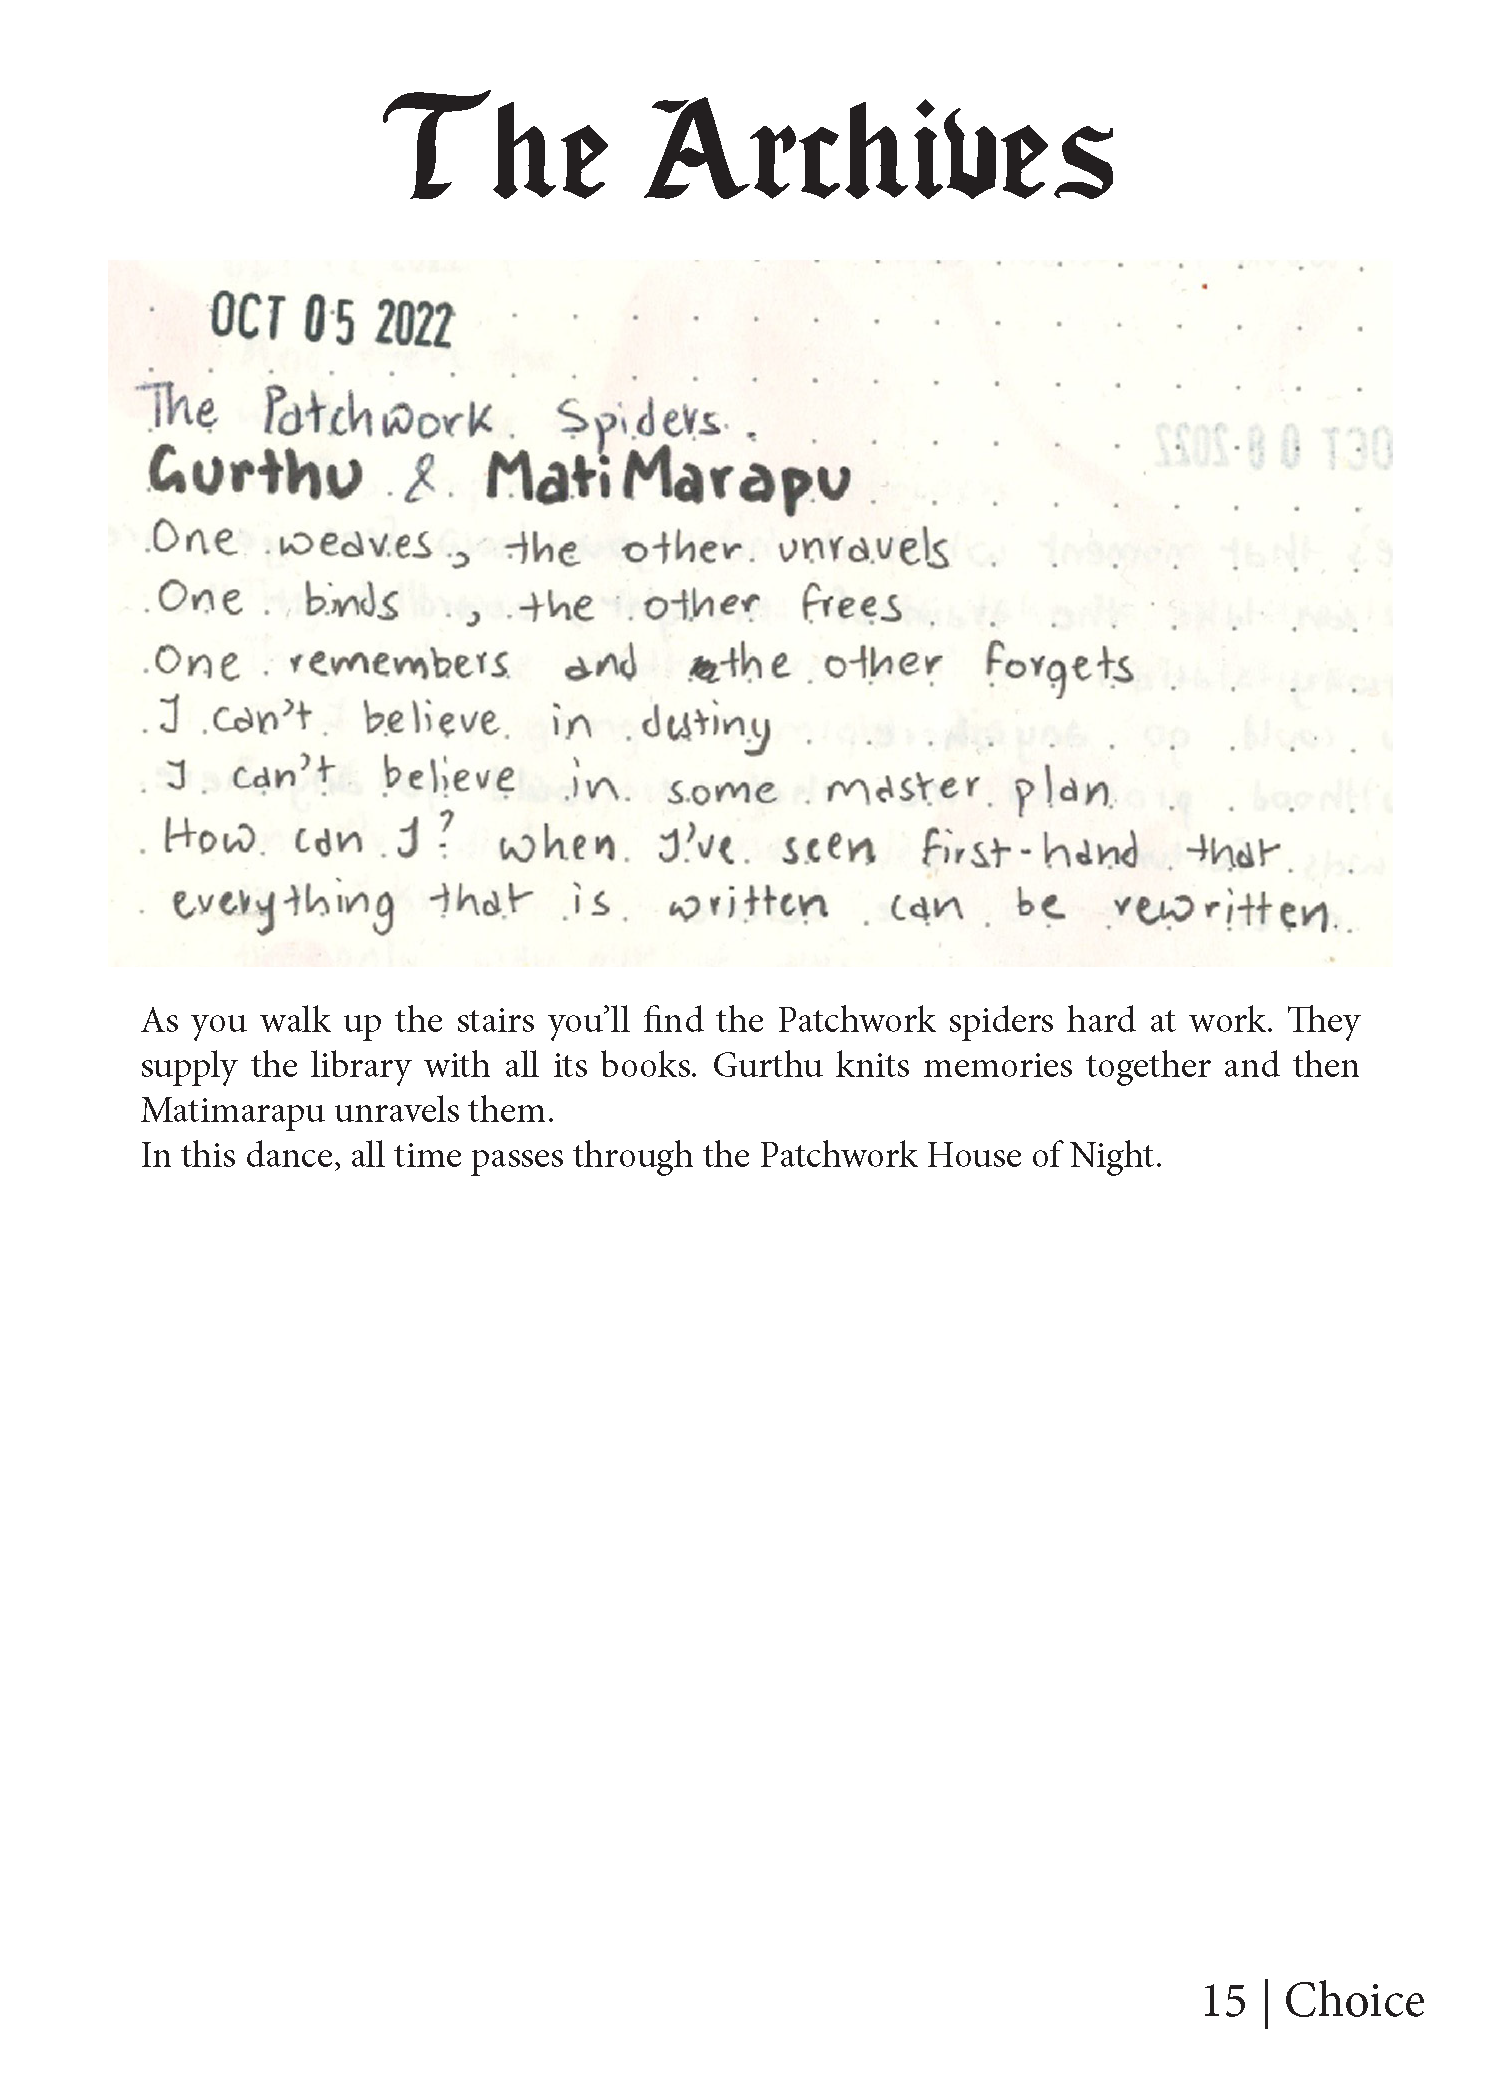 The Archives
OCT 05 2022
The Patchwork Spiders.
Gurthu & MatiMarapu
One weaves, the other unravels
One binds, the other frees
One remembers and the other forgets
I can't believe in destiny
I can't believe in some master plan
How can I? when I've seen first-hand that
everything that is written can be rewritten.
As you walk up the stairs you’ll find the Patchwork spiders hard at work. They
supply the library with all its books. Gurthu knits memories together and then
Matimarapu unravels them.
In this dance, all time passes through the Patchwork House of Night.
15 | Choice